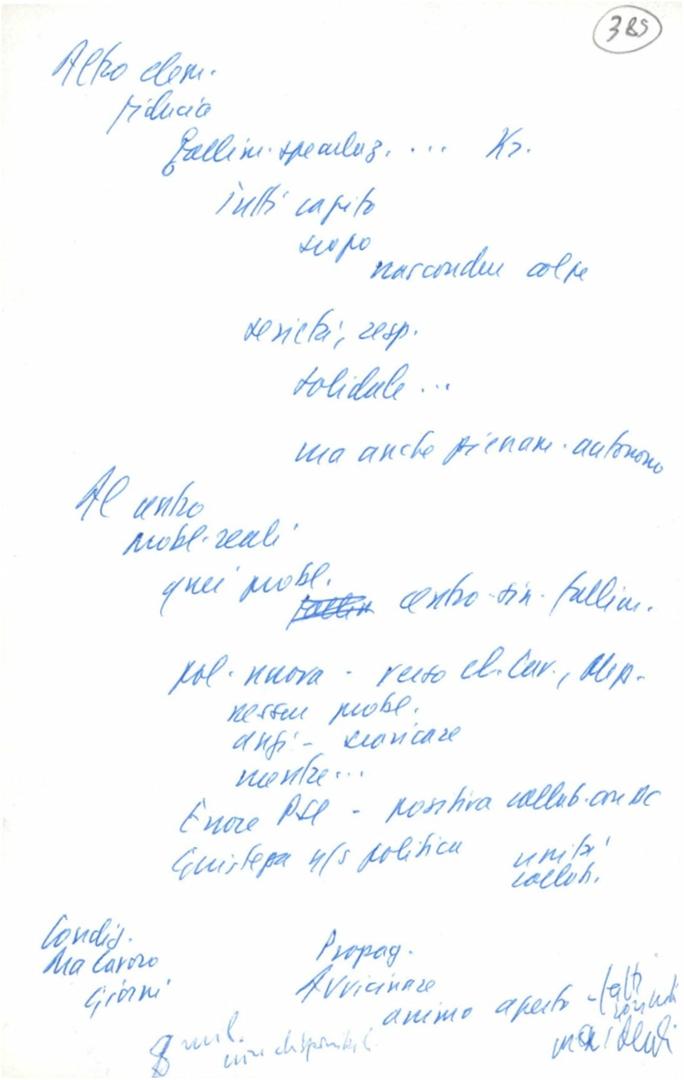 385
Altro elem.
fiducia
Fallim. speculaz. ... Kr.
Tutti capito
scopo
nascondere colpe
serietà, resp.
solidale ...
ma anche pienam. autonomo
Al centro
probl. reali
quei probl.
centro-sin. fallim.
pol. nuova - verso cl. lav.,
nessun probl.
anzi - scaricare
mentre...
Errore PSI - positiva collab. con DC
Giustezza n/s politica
unità
collab.
Condiz.
Ma lavoro
Giorni
Propag.
Avvicinare
animo aperto - fatti
8 mil.
non disponibil.